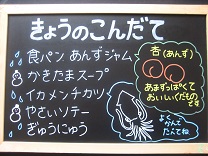 きょうのこんだて
食パン あんずジャム
かきたまスープ
イカメンチカツ
やさいソテー
ぎゅうにゅう
杏(あんず)
あまずっぱくて
おいしいくだもの
です
よく
かんで
たべてね